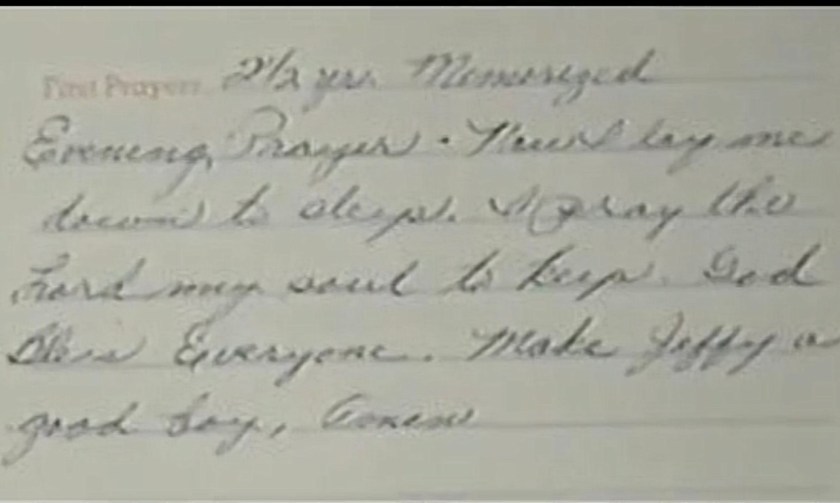 First Prayers 2 1/2 yr. Memorized
Evening Prayer - Now I lay me
down to sleep. I pray the
Lord my soul to keep. God
Bless Everyone. Make Jeffy a
good boy, Amen